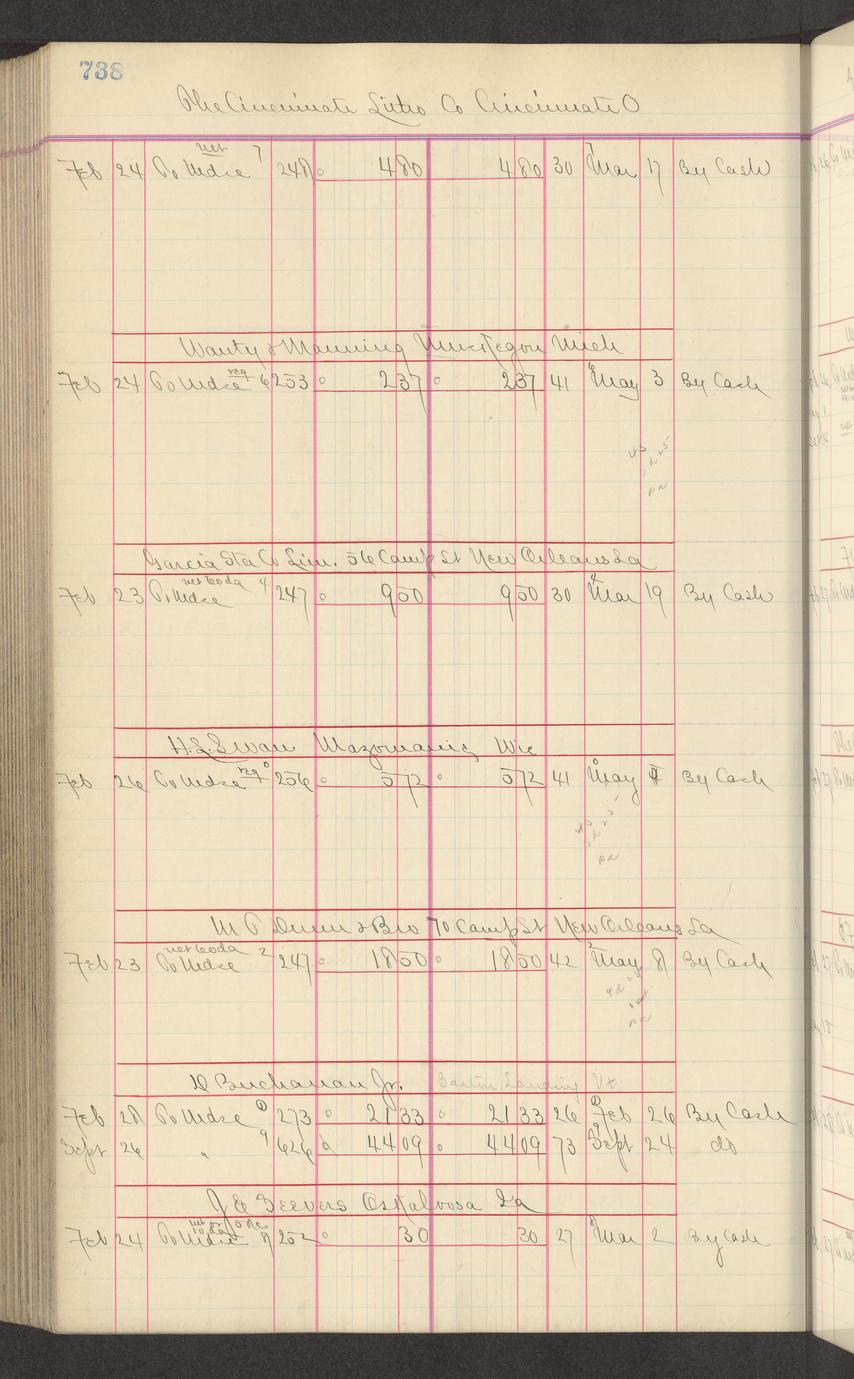 738
The Cincinnati Litho Co Cincinnati O
net 7
Feb 24 To Mdse 248 4 80 4 80 30 Mar 17 By Cash
Wanty & Manning Muskegon Mich
reg
Feb 24 To Mdse 6 253 2 37 2 37 41 May 3 By Cash
Garcia Sta Co Lim. 56 Camp St New Orleans La
net 60 da 4
Feb 23 To Mdse 247 9 50 9 50 30 Mar 19 By Cash
H.L. Swan Mazomanie Wis
reg 0
Feb 26 To Mdse 256 5 72 5 72 41 May By Cash
M P Dunn & Bro 70 Camp St New Orleans La
net 60 da 2
Feb 23 To Mdse 247 18 50 18 50 42 May 8 By Cash
D Buchanan Jr. Barton Landing Vt
Feb 28 To Mdse 273 21 33 21 33 26 Feb 26 By Cash
Sept 26 " 9 626 44 09 44 09 73 Sept 24 do
J & Seevers Oskaloosa Ia
Feb 24 To Mdse 252 30 30 27 Mar 2 By Cash